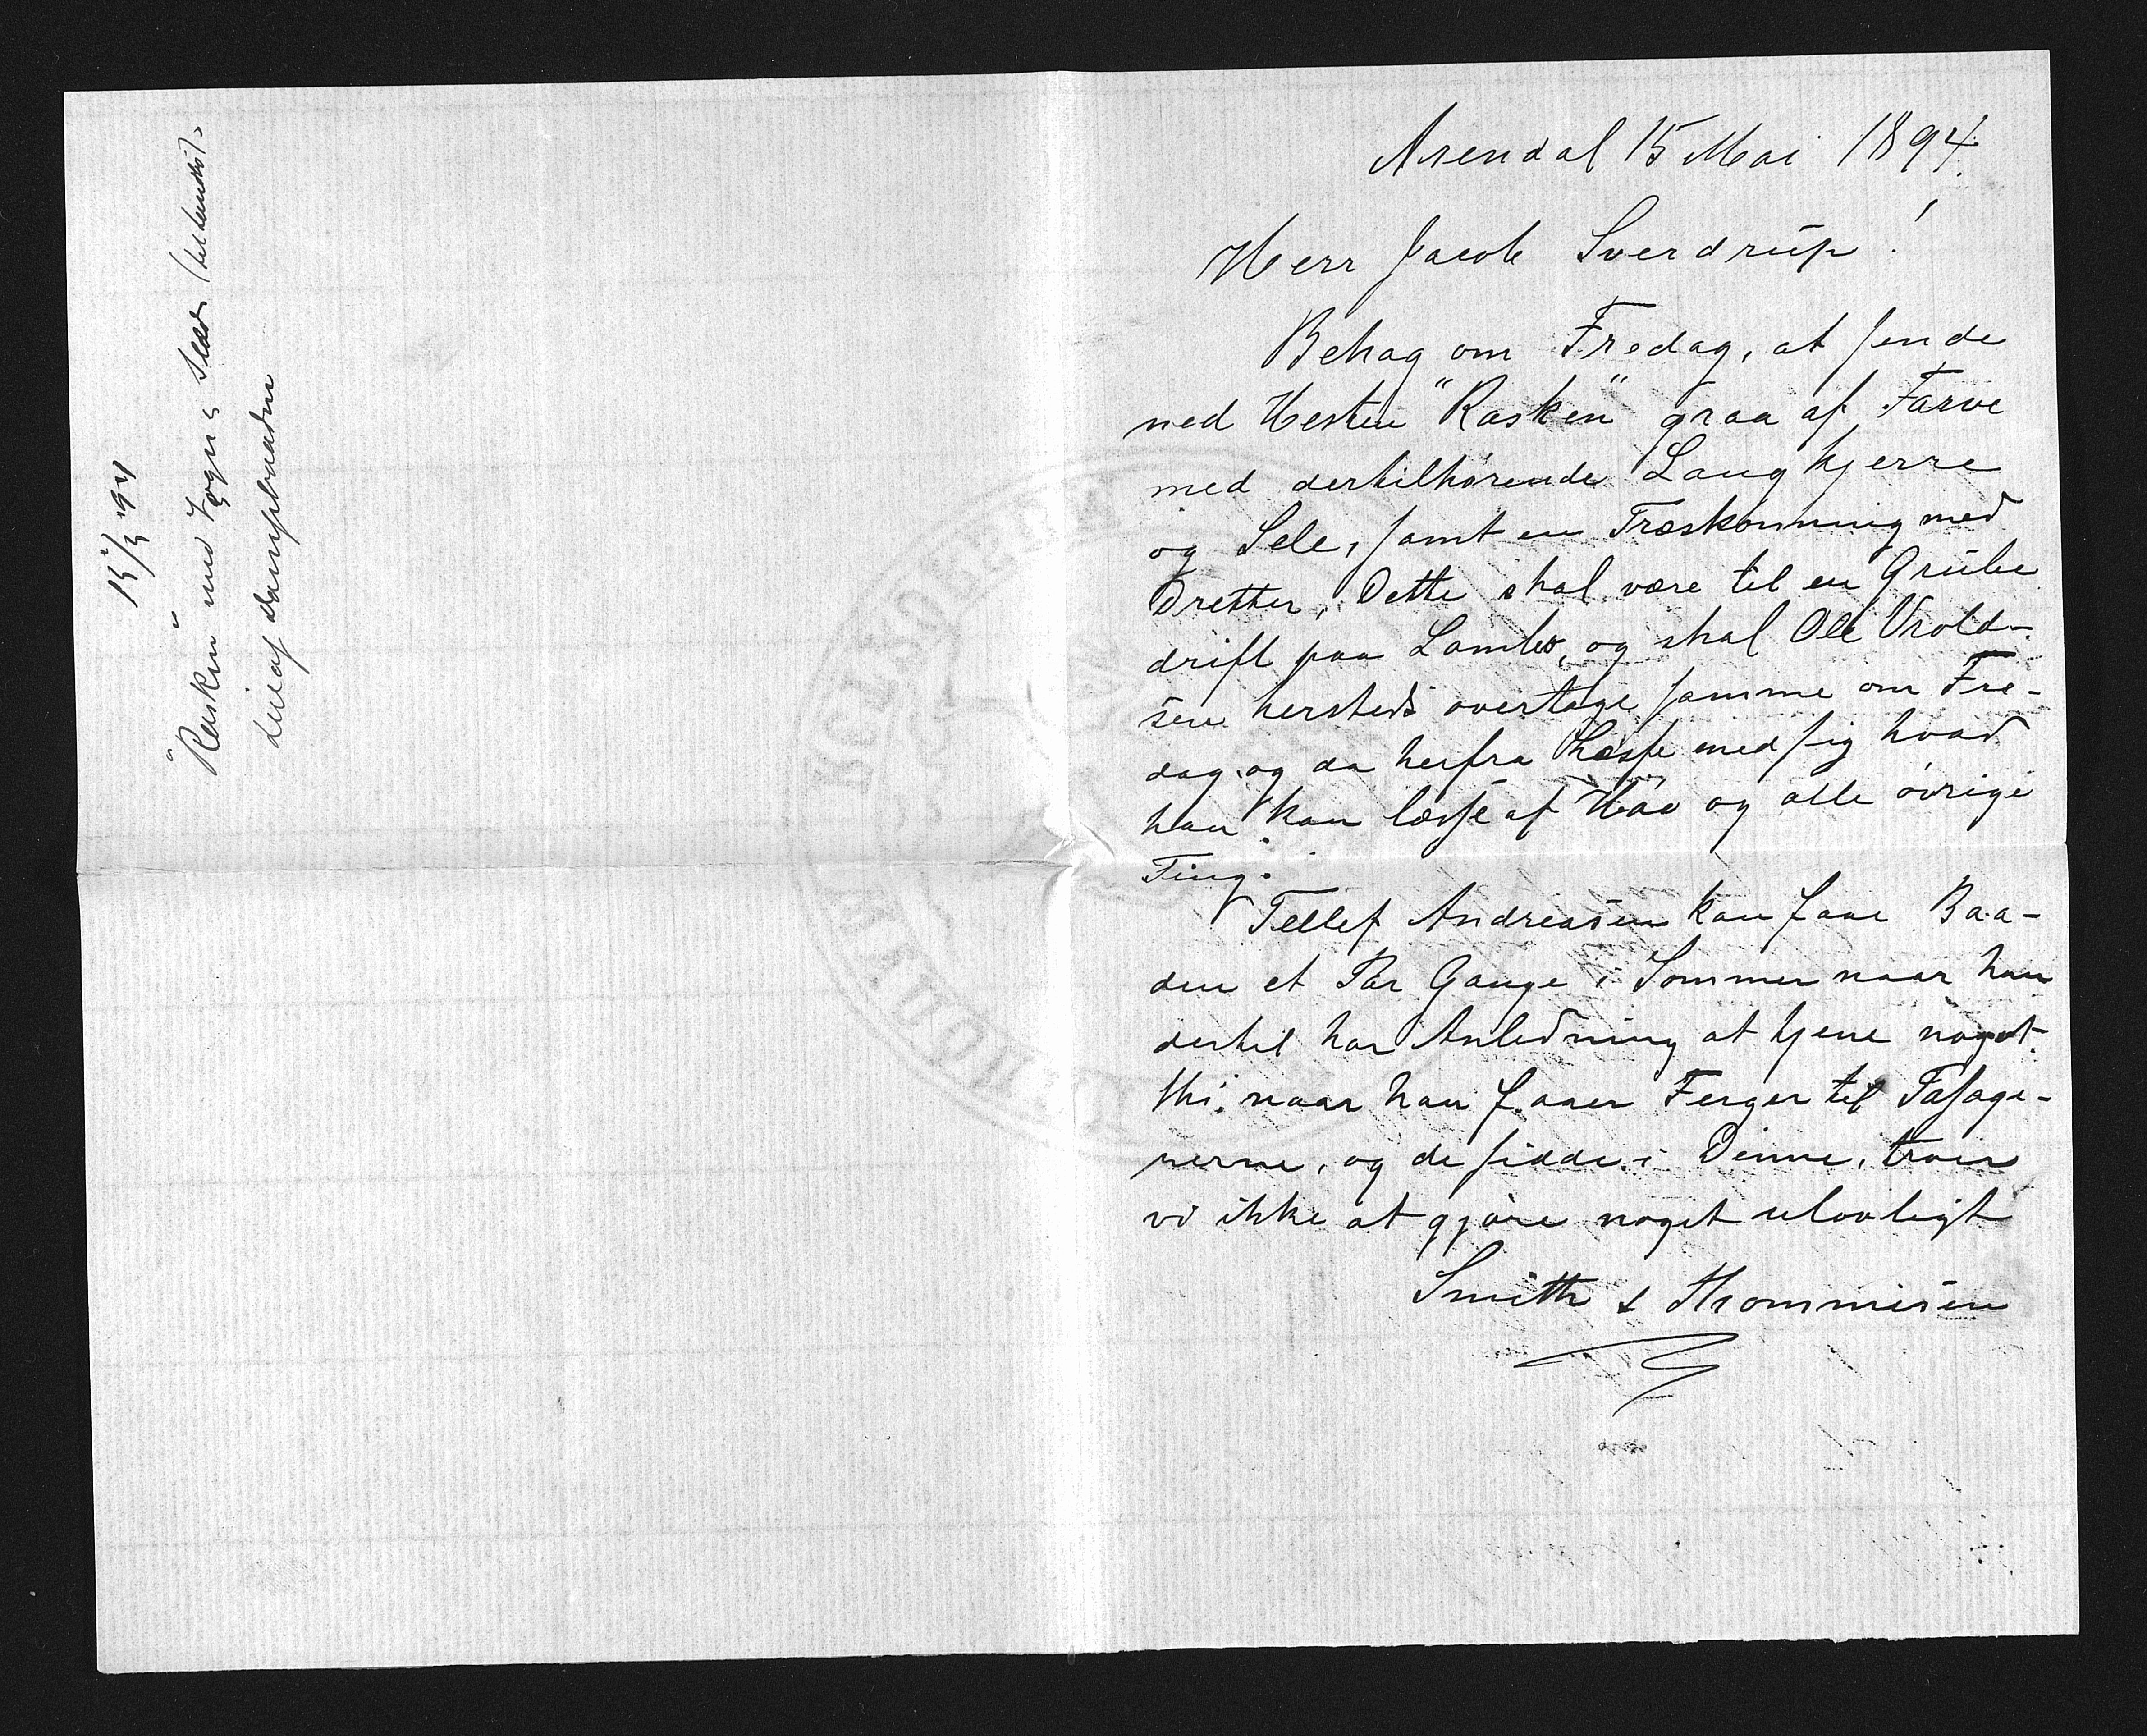 15/5 '94
"Rasken" med Vogn & Seler
Leie af dampbaaden
Arendal 15 Mai 1894.
Herr Jacob Sverdrup!
Behag om Fredag, at sende
ned Hesten "Rasken" graa af Farve
med dertilhørende Langkjerre
og Sele, samt en Træskonning med
Dretter, Dette skal være til en Grube
drift paa Landet, og skal Ole Vrold-
sen hersteds overtage samme om Fre-
dag, og da herfra læsse med sig hvad
han kan læsse af Høe og alle øvrige
Ting.
Tellef Andreasen kan faae Baa-
den et Par Gange i Sommer naar han
dertil har Anledning at tjene noget.
thi, naar han faaer Ferger til Pasage-
rerne, og de sidde i Denne, troer
vi ikke at gjøre noget ulovligt
Smith & Thommesen